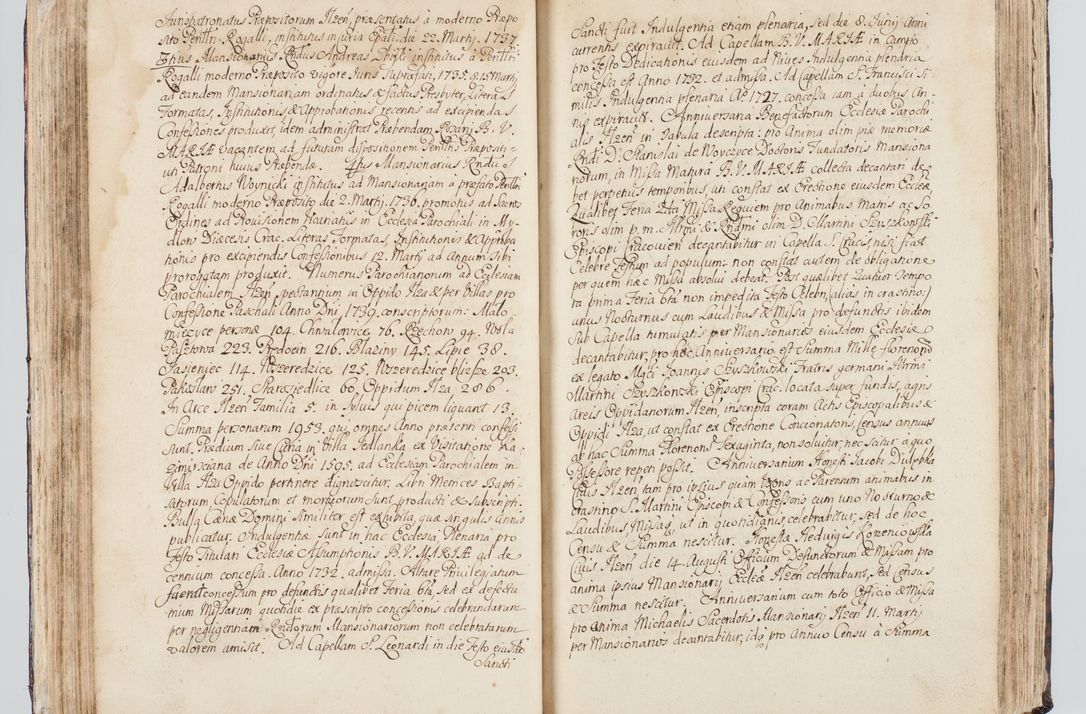 Jurispatronatus Præpositorum Ilzen. præsentatus à moderno Præpo
sito Penltri Rogalli, institutus in juria Epāli die 22. Martij. 1737
3tius Mansionarius Rndus Andreas institutus à Penltri
Rogalli moderno Præposito vigore Juris Suprafati, 1735. & 15 Martij
ad eandem Mansionariam ordinatus & factus Presbiter, Literas
Formatas, Institutionis & Approbationis recentis ad excipiendas
Confessiones produxit, idem administrat Præbendam Rozarij B. V.
MARIÆ vacantem ad futuram dispositionem Penltris Præposití
uti Patroni huius Præbendæ. 4tus Mansionarius Rndus
Adalbertus Woynicki institutus ad Mansionariam a præfato Penltri
Rogalli moderno Præposito die 2. Martij. 1736. promotus ad Sacros
Ordines ad Provisionem in Ecclesia Parochiali in My-
dlow Diæcesis Crac. Literas Formatas, Institutionis & Approba
tionis pro excipiendis Confessionibus 12. Martij ad annum sibi
prorogatam produxit. Numerus Parochianorum ad Ecclesiam
Parochialem Ilzen. spectantium in Oppido Ilza & per Villas pro
Confessione Paschali Anno Dni 1739. conscriptorum: Malo
mierzyce personæ 104. Chwalowice 76. Krzechow 94. Wola
Pasztowa 223. Predocin 216. Blaziny 145. Lipie 38.
Jasieniec 114. Wszeredzice 125. Wszeredzice bliższe 203.
Pakoslaw 251. Starosiedlice 60. Oppidum Ilza 286.
In Arce Ilzen. Familia 5. in Sylvis qui picem liquant 13.
Summa personarum 1953. qui omnes Anno præsenti confessi
sunt. Prædium sive Curia in Villa Jedlanka ex Visitatione Ka
zimirsciana de Anno Dni 1595. ad Ecclesiam Parochialem in
Villa Ilza Oppido pertinere dignoscitur. Libri Metrices Bapti-
satorum, Copulatorum et mortuorum sunt producti & subscripti.
Bulla Cænæ Domini similiter est exhibita, quæ singulis annis
publicatur. Indulgentiæ sunt in hac Ecclesia Plenaria pro
Festo Titulari Ecclesiæ Assumptionis B. V. MARIÆ ad de
cennium concessa Anno 1732. admissa. Altare Privilegiatum
fuerat concessum pro defunctis qualibet Feria 6tâ, sed ex defectu
mium Missarum quotidie ex præscripto concessionis celebrandarum
per negligentiam Rndorum Mansionariorum non celebratarum
valorem amisit. Ad Capellam S. Leonardi in die Festo eiusdē
Sancti
Sancti fuit Indulgentia etiam plenaria, sed die 8. Junij anni
currentis expiravit. Ad Capellam B. V. MARIÆ in Campo
pro Festo Dedicationis eiusdem ad Nives Indulgentia plenaria
concessa est Anno 1732. et admissa. Ad Capellam S. Francisci Si
milis Indulgentia plenaria Aº. 1727. concessa iam à duobus an-
nis expiravit. Anniversaria Benefactorum Ecclesiæ Parochi
alis Ilzen. in Tabula descripta: pro Anima olim piæ memoriæ
Rndi D. Stanislai de Woyczyce Doctoris Fundatoris Mansiona
riorum, in Missa Matura B. V. MARIÆ collecta decantari de-
bet perpetuis temporibus, uti constat ex Erectione eiusdem Ecclæ.
Qualibet Feria 2da Missa Requiem pro Animabus Matris ac So
roris olim p. m. Illrmi & Rndmi olim D. Martini Szyszkowski
Episcopi Cracovien. decantabitur in Capella S. Crucis, nisi fiat
Celebre Festum ad populum: non constat autem de obligatione
per quem hæc Missa absolvi debeat. Post quælibet Quatuor Tempo
ra prima Feria 6tâ non impedita Festo Celebri (alias in crastino)
unus Nocturnus cum Laudibus & Missa pro defunctis ibidem
sub Capella tumulatis per Mansionarios eiusdem Ecclesiæ
decantabitur, pro hoc Anniversario est Summa Mille florenorū
ex legato Mgci Joannis Szyszkowski Fratris germani Illrmi
Martini Szyszkowski Episcopi Crac. locata super fundis, agris
Areis Oppidanorum Ilzen. inscripta coram Actis Episcopalibus &
Oppidi Ilza, ut constat ex Erectione Concionatoris, census annuus
ab hac Summa Florenorū Sexaginta, non solvitur, nec scitur à quo
Possessore repeti possit. Anniversarium Honesti Jacobi
Civis Ilzen. tam pro ipsius quam ac Parentum animabus in
crastino S. Martini Episcobi & Confessoris cum uno Nocturno &
Laudibus Missaq, ut in quotidianis celebratitur; sed de hoc
Censu & Summa nescitur. Honestæ Hedvigis Korzeniowska
Civis Ilzen. die 14. Augusti Officium Defunctorum & Missam pro
anima ipsius Mansionarij Ecclæ Ilzen. celebrabunt, sed census
& Summa nescitur. Anniversarium cum toto Officio & Missa
pro Anima Michaelis Sacerdotis Mansionarij Ilzen. 11. Martij
per Mansionarios decantabitur, idq́ pro Annuo Censu à Summa